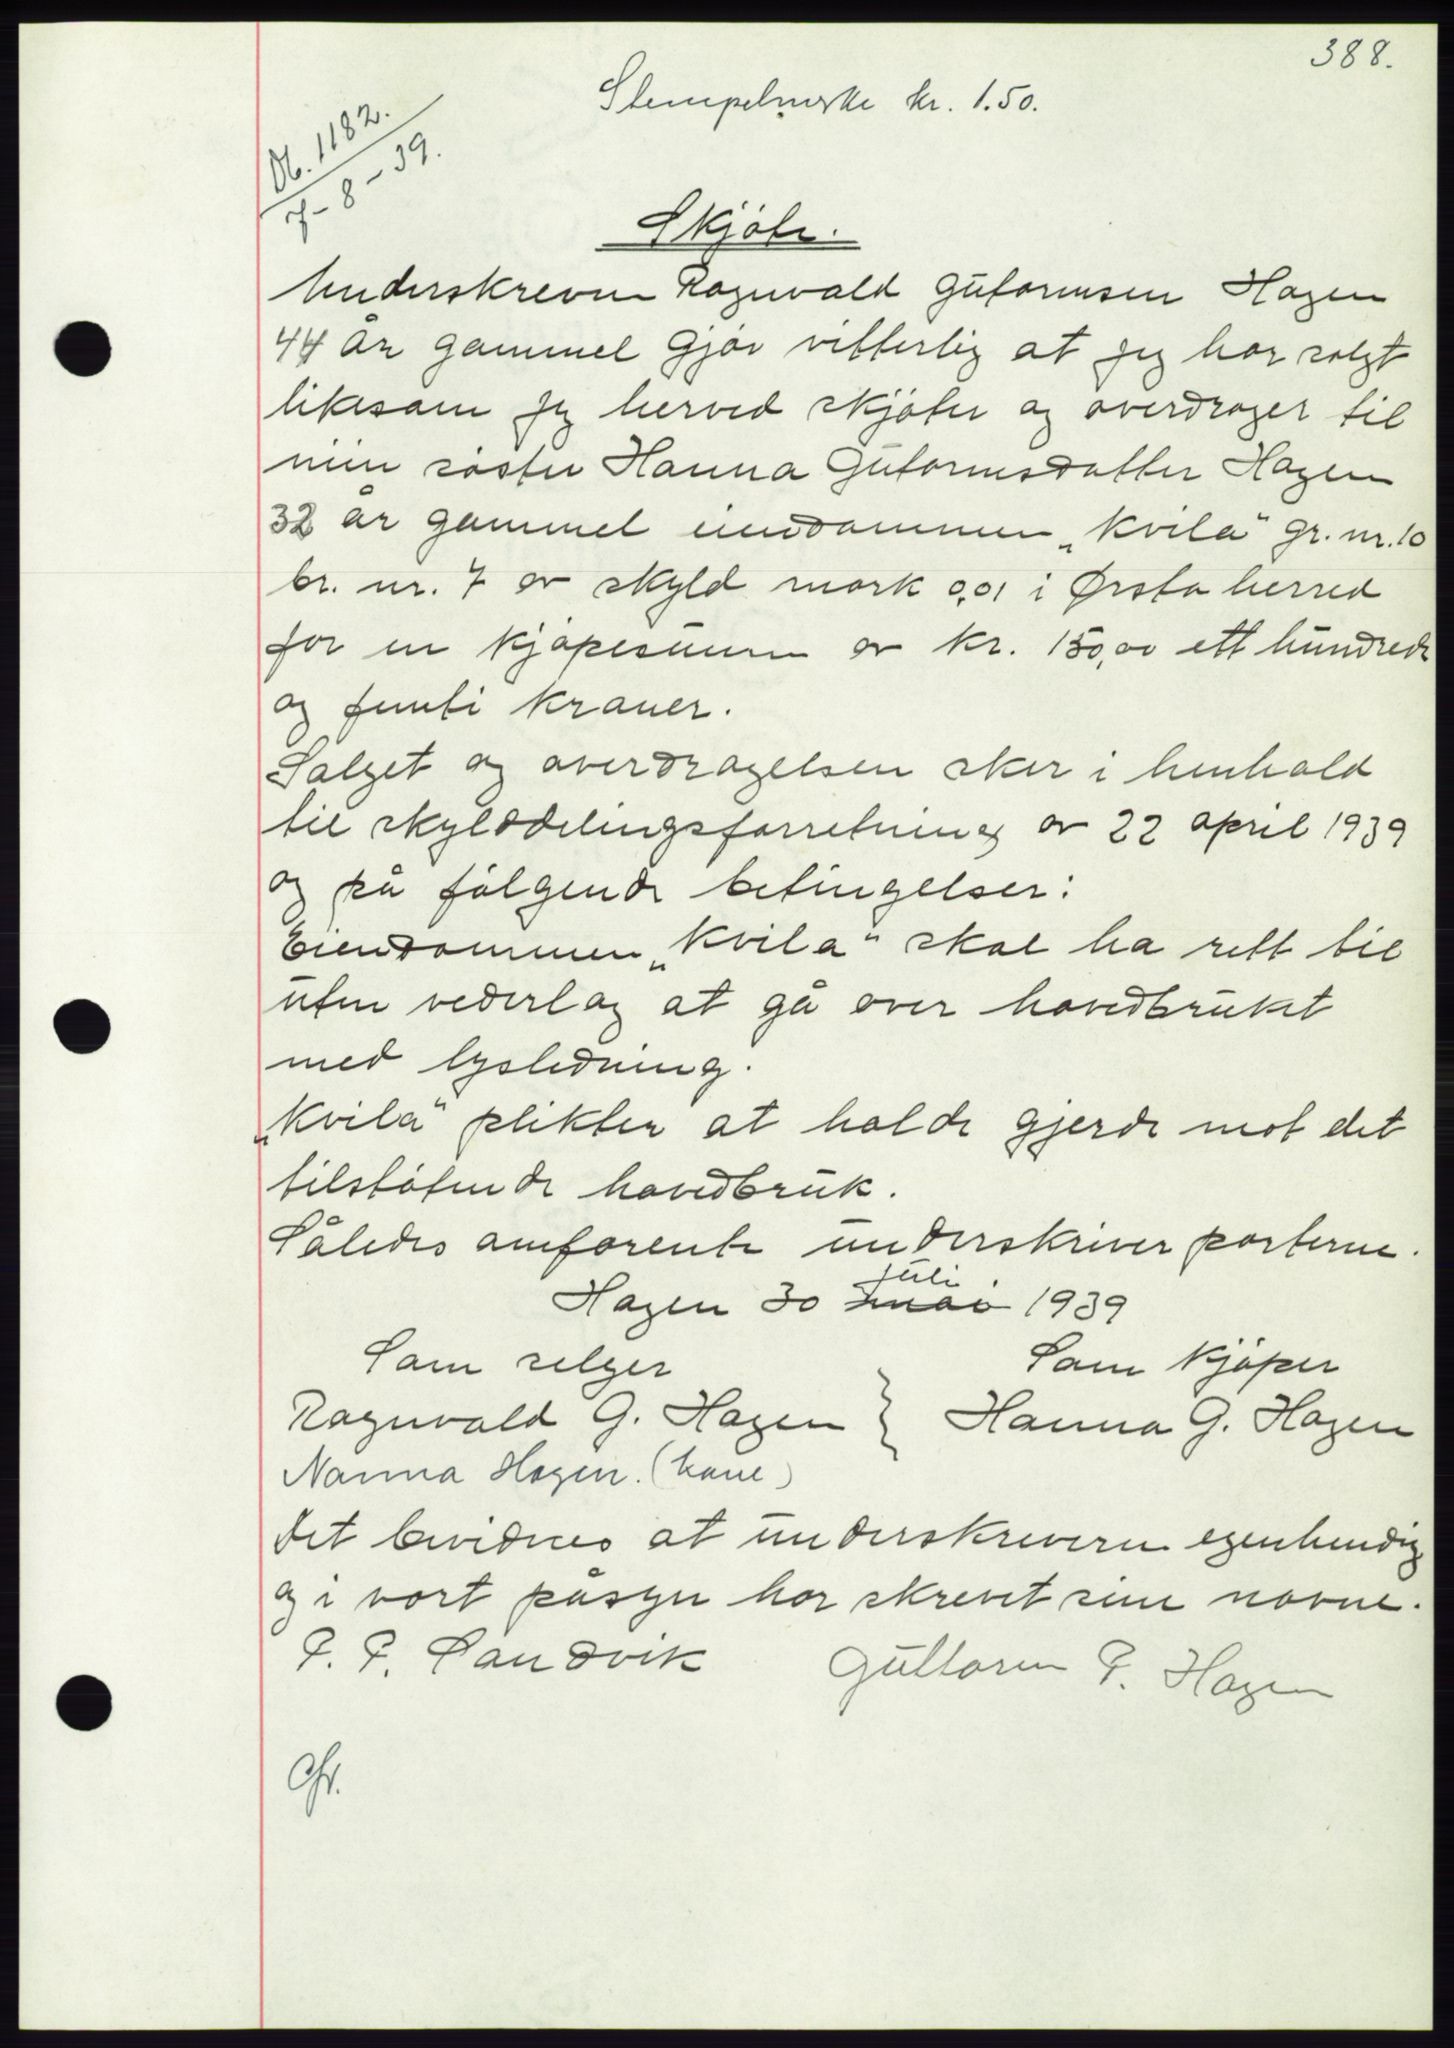 388.
Stempelmerke kr. 1.50.
Db. 1182.
7-8-39.
Skjøte.
Underskreven Ragnvald Gutormsen Hagen
44 år gammel gjør vitterlig at jeg har solgt
likesom jeg herved skjøter og overdrager til
min søster Hanna Gutormsdatter Hagen
32 år gammel eiendommen „Kvila" gr. nr. 10
br. nr. 7 av skyld mark 0,01 i Ørsta herred
for en kjøpesum av kr. 150,00 ett hundrede
og femti kroner.
Salget og overdragelsen sker i henhold
til skylddelingsforretning av 22 april 1939
og på følgende betingelser:
Eiendommen „Kvila" skal ha rett til
uten vederlag at gå over hovedbruket
med lysledning.
„Kvila" plikter at holde gjerde mot det
tilstøtende hovedbruk.
Således omforente underskriver parterne.
juli
Hagen 30 mai 1939
Som selger Som kjøper
Ragnvald G. Hagen } Hanna G. Hagen
Nanna Hagen. (kone)
Det bevidnes at underskriverne egenhendig
og i vort påsyn har skrevet sine navne.
P. P. Sandvik Guttorm P. Hagen